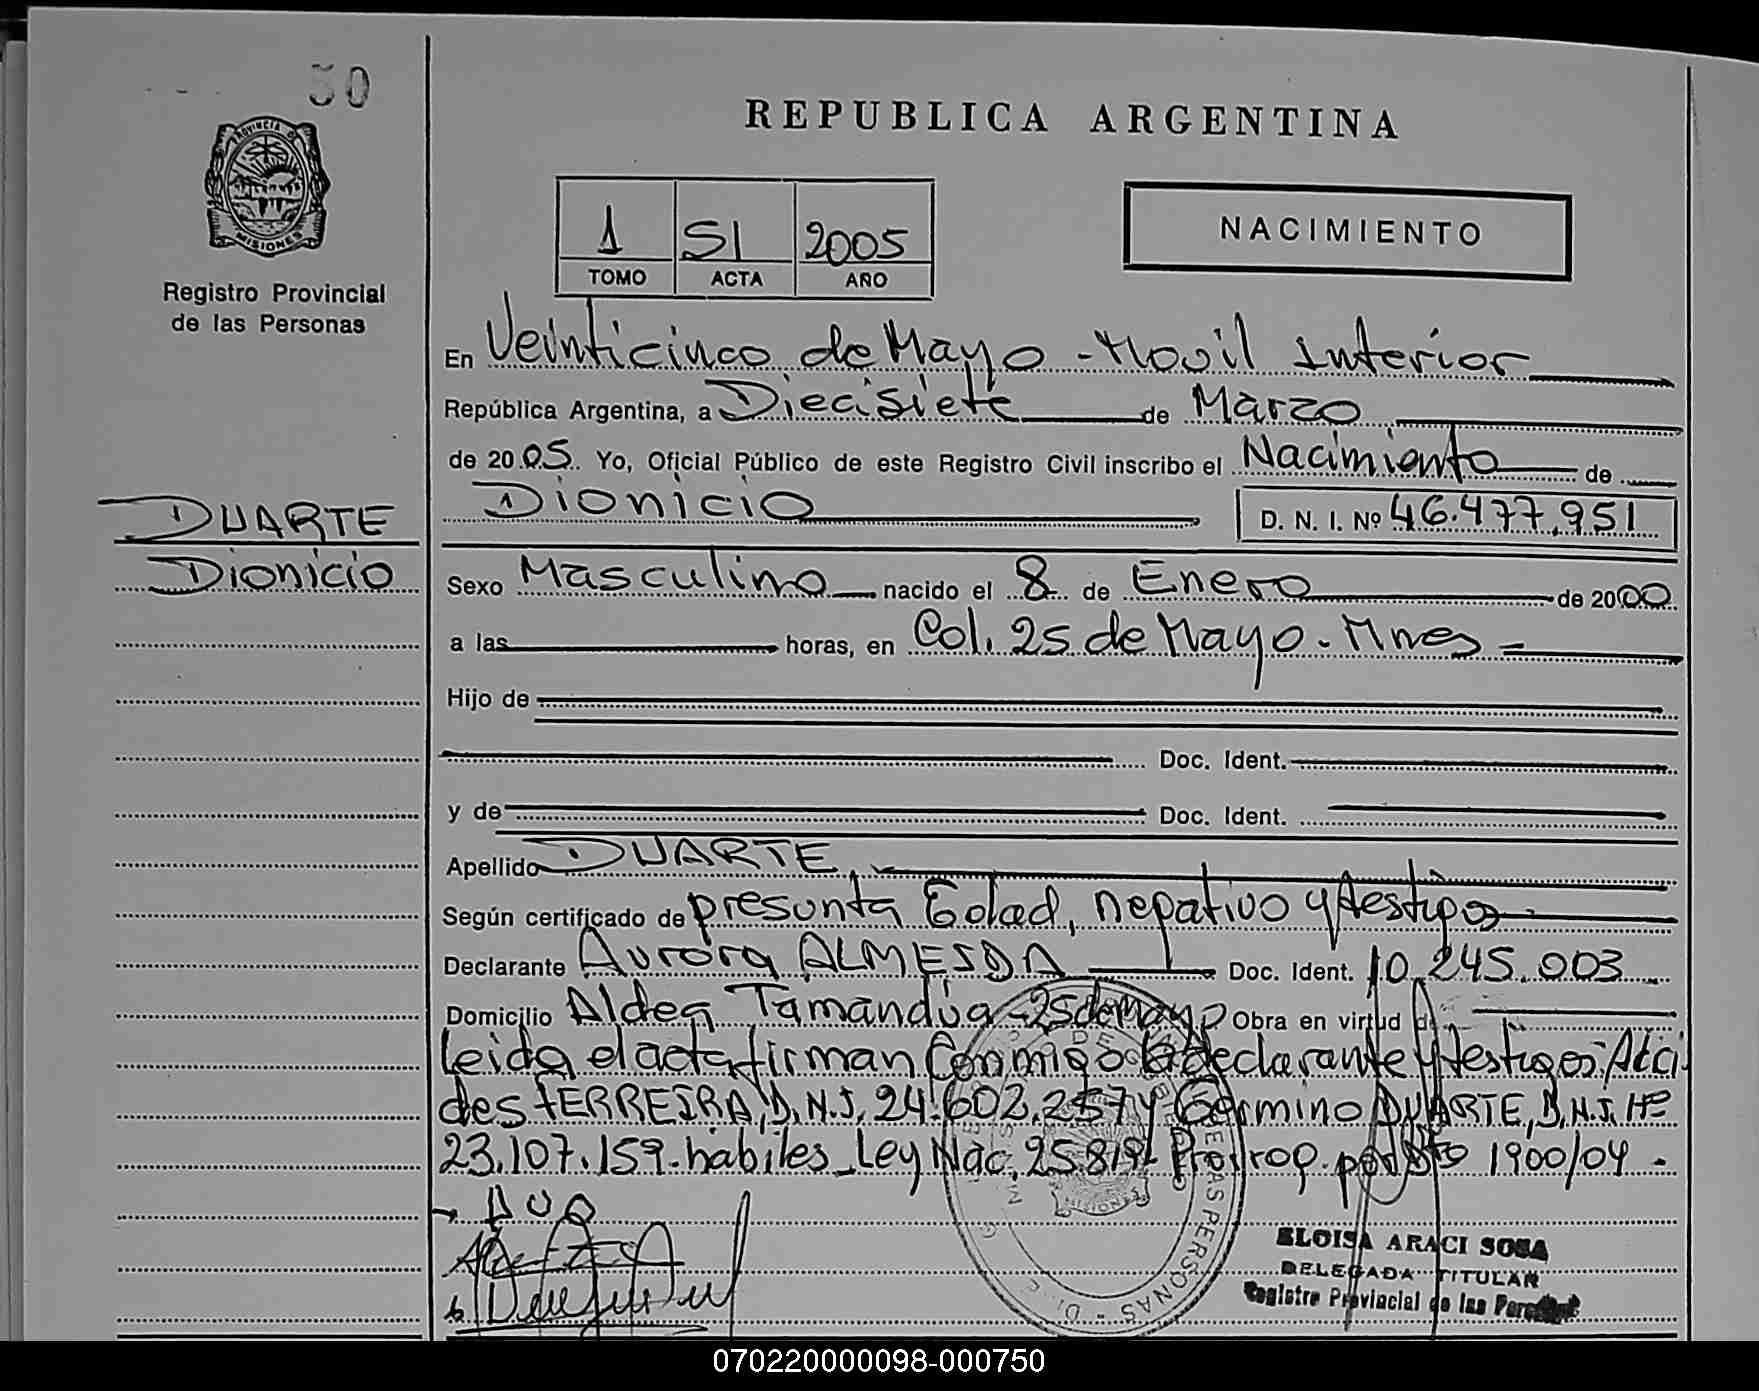 50
PROVINCIA DE
MISIONES
Registro Provincial
de las Personas
DUARTE
Dionicio
REPUBLICA ARGENTINA
1 51 2005
TOMO ACTA AÑO
NACIMIENTO
En Veinticinco de Mayo - Movil Interior
República Argentina, a Diecisiete de Marzo
de 2005. Yo, Oficial Público de este Registro Civil inscribo el Nacimiento de
Dionicio D. N. I. Nº 46.477.951
Sexo Masculino nacido el 8 de Enero de 2000
a las horas, en Col. 25 de Mayo. Mnes
Hijo de
Doc. Ident.
y de Doc. Ident.
Apellido DUARTE
Según certificado de presunta Edad, negativo y testigos
Declarante Aurora ALMEIDA Doc. Ident. 10.245.003
Domicilio Aldea Tamandúa - 25 de Mayo Obra en virtud de
Leida el acta firman Conmigo la declarante y testigos: Alci
des FERREIRA, D.N.I. 24.602.257 y Germino DUARTE, D.N.I. Nº
23.107.159. habiles - Ley Nac. 25.819 - Prorrog. por Dto 1900/04 -
ELOISA ARACI SOSA
DELEGADA TITULAR
Registro Provincial de las Personas
070220000098-000750